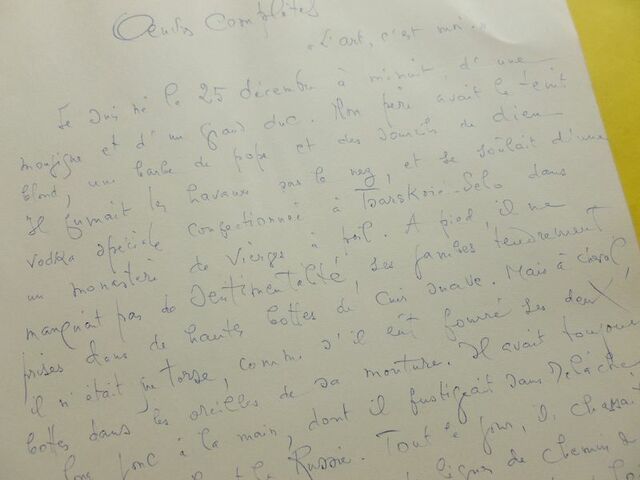 Oeuvres Complètes
« L'art, c'est moi. »
Je suis né le 25 décembre à minuit, d'une
moujique et d'un grand duc. Mon père avait le teint
blond, une barbe de pope et des sourcils de dieu
Il fumait les havanes par le nez, et se soûlait d'une
vodka spéciale confectionnée à Tsarskoïe-Selo dans
un monastère de Vierges à poil. A pied, il ne
manquait pas de sentimentalité, ses jambes tendrement
prises dans de hautes bottes de cuir suave. Mais à cheval
il n'était que torse, comme s'il eût fourré ses deux
bottes dans les oreilles de sa monture. Il avait toujours
long jonc à la main, dont il fustigeait sans relâche
la Russie. Tout le jour, il chassait
lignes de chemin de